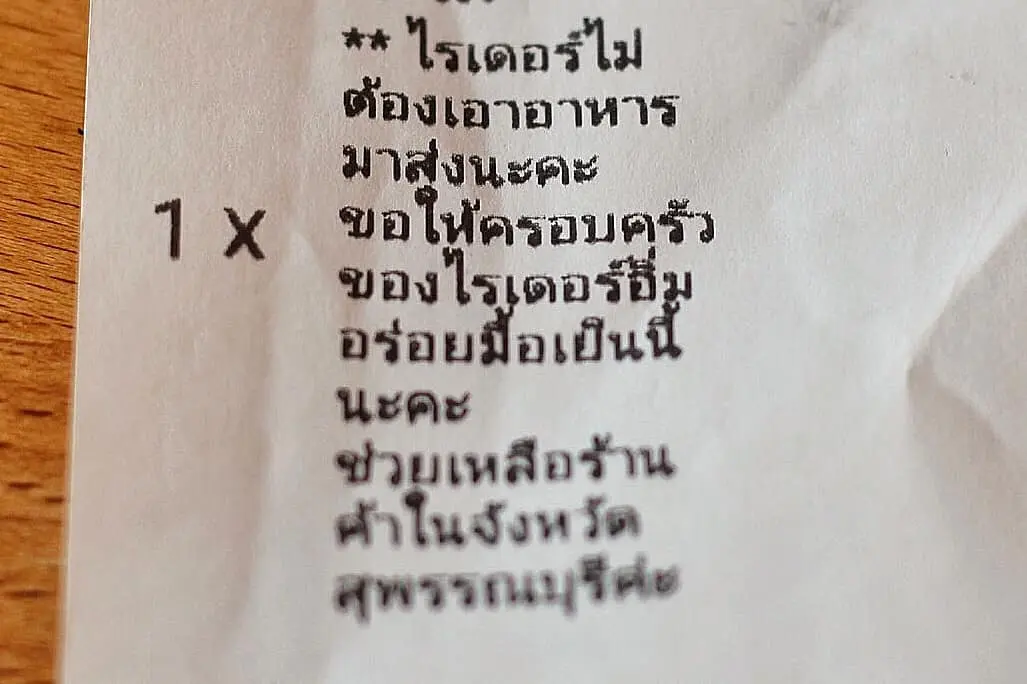 ** ไรเดอร์ไม่
ต้องเอาอาหาร
มาส่งนะคะ
1 x ขอให้ครอบครัว
ของไรเดอร์อิ่ม
อร่อยมื้อเย็นนี้
นะคะ
ช่วยเหลือร้าน
ค้าในจังหวัด
สุพรรณบุรีค่ะ